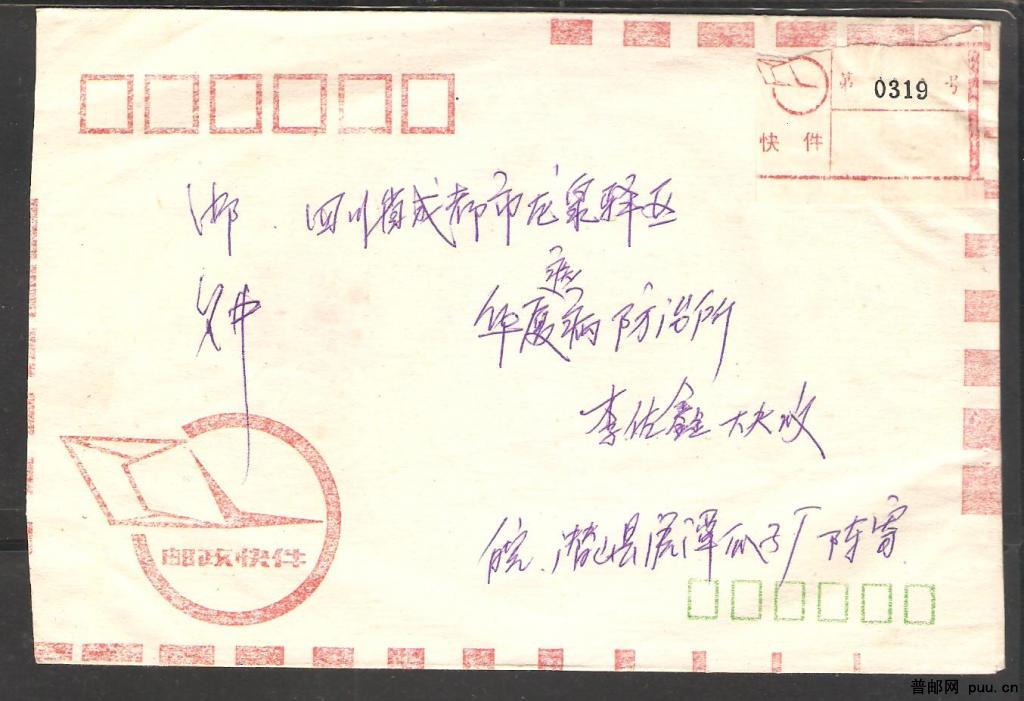 第 0319 号
快件
邮 四川省成都市龙泉驿区
快件
华厦病防治所
李佐鑫 大夫收
皖 潜山县 瓜子厂 陈寄
邮政快件
普邮网 puu.cn